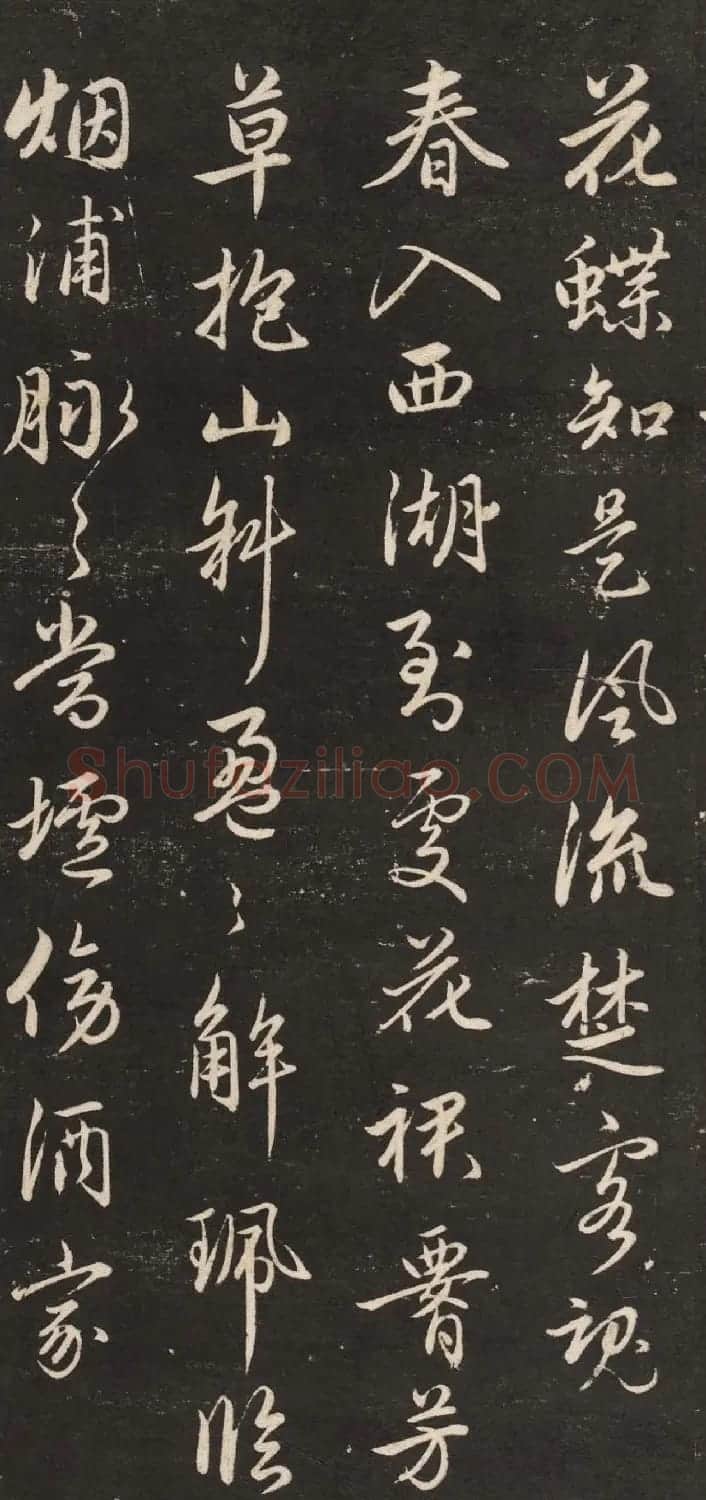 花蝶知是風流楚客魂
春入西湖到處花裙腰芳
草抱山斜盈〻解珮臨
烟浦脉〻當壚傍酒家
Shufaziliao.COM